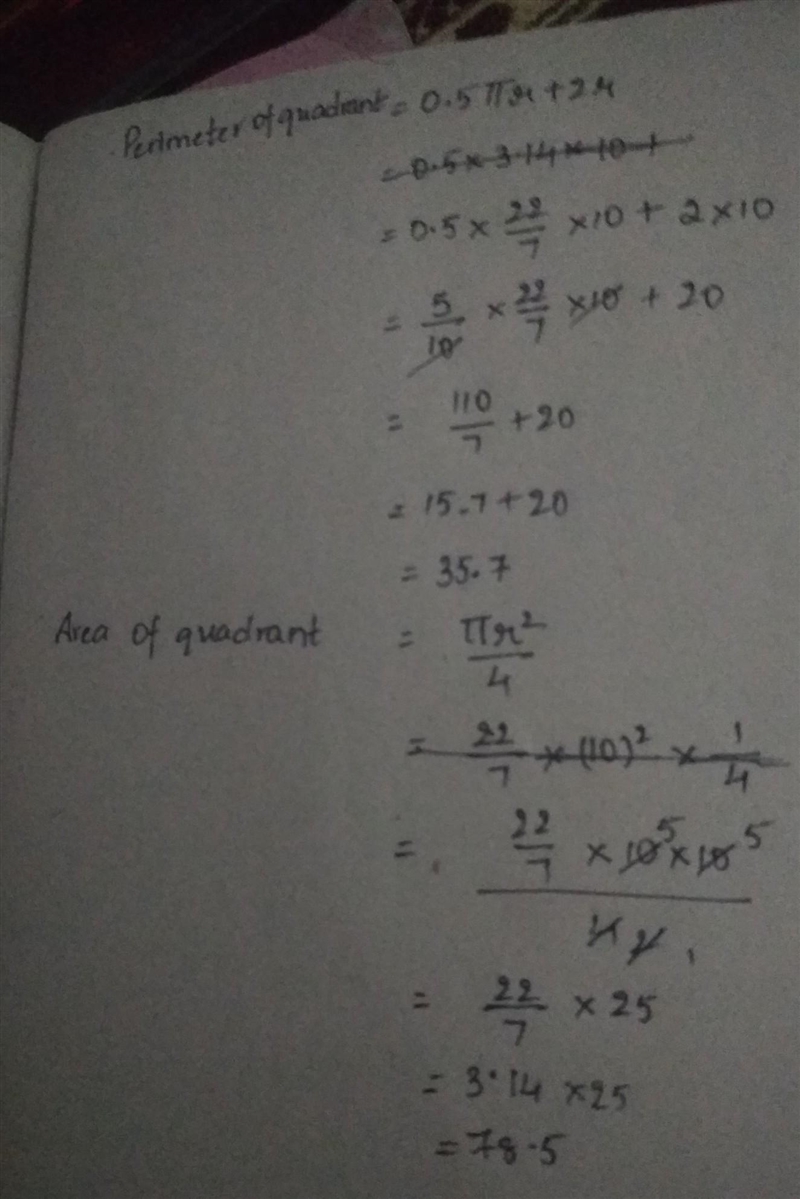 Perimeter of quadrant = 0.5 πr + 2r
= 0.5 × 3.14 × 10 +
= 0.5 × 22/7 × 10 + 2 × 10
= 5/10 × 22/7 × 10 + 20
= 110/7 + 20
= 15.7 + 20
= 35.7
Area of quadrant = πr²/4
= 22/7 × (10)² × 1/4
= 22/7 × 10 5 × 10 5 / 4 2 1
= 22/7 × 25
= 3.14 × 25
= 78.5